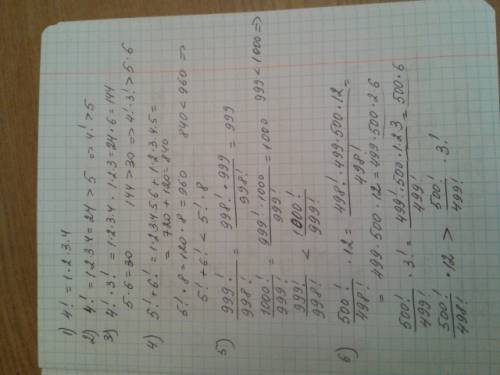 1) 4! = 1·2·3·4
2) 4! = 1·2·3·4 = 24 > 5 => 4! > 5
3) 4!·3! = 1·2·3·4 · 1·2·3 = 24·6 = 144
5·6 = 30 144 > 30 => 4!·3! > 5·6
4) 5! + 6! = 1·2·3·4·5·6 + 1·2·3·4·5 =
= 720 + 120 = 840
5!·8 = 120·8 = 960 840 < 960 =>
5! + 6! < 5!·8
5) 999!/998! = 998!·999/998! = 999
1000!/999! = 999!·1000/999! = 1000 999 < 1000 =>
999!/998! < 1000!/999!
6) 500!/498! · 12 = 498!·499·500·12/498! =
= 499·500·12 = 499·500·2·6
500!/499! · 3! = 499!·500·1·2·3/499! = 500·6
500!/498! · 12 > 500!/499! · 3!